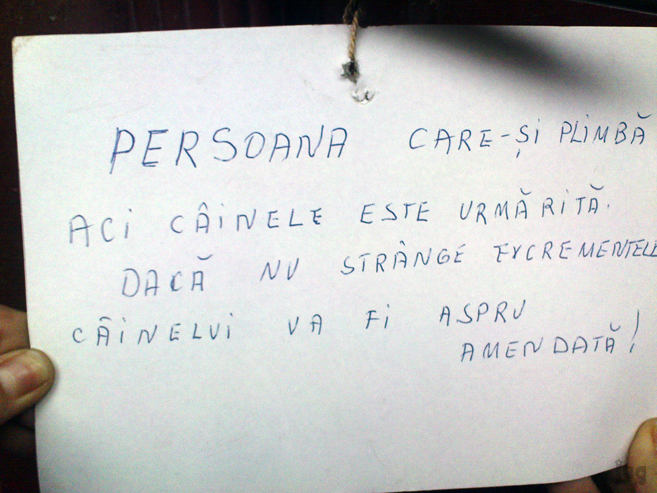 PERSOANA CARE-ȘI PLIMBĂ
ACI CÂINELE ESTE URMĂRITĂ.
DACĂ NU STRÂNGE EXCREMENTELE
CÂINELUI VA FI ASPRU
AMENDATĂ!